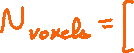 N voxels = [